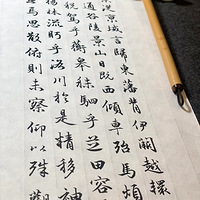 京域言歸東藩背伊闕越轘
通谷陵景山日既西傾車殆馬煩
稅駕乎蘅皋秣駟乎芝田容
林流眄乎洛川於是精移神
焉思散俯則未察仰以殊觀